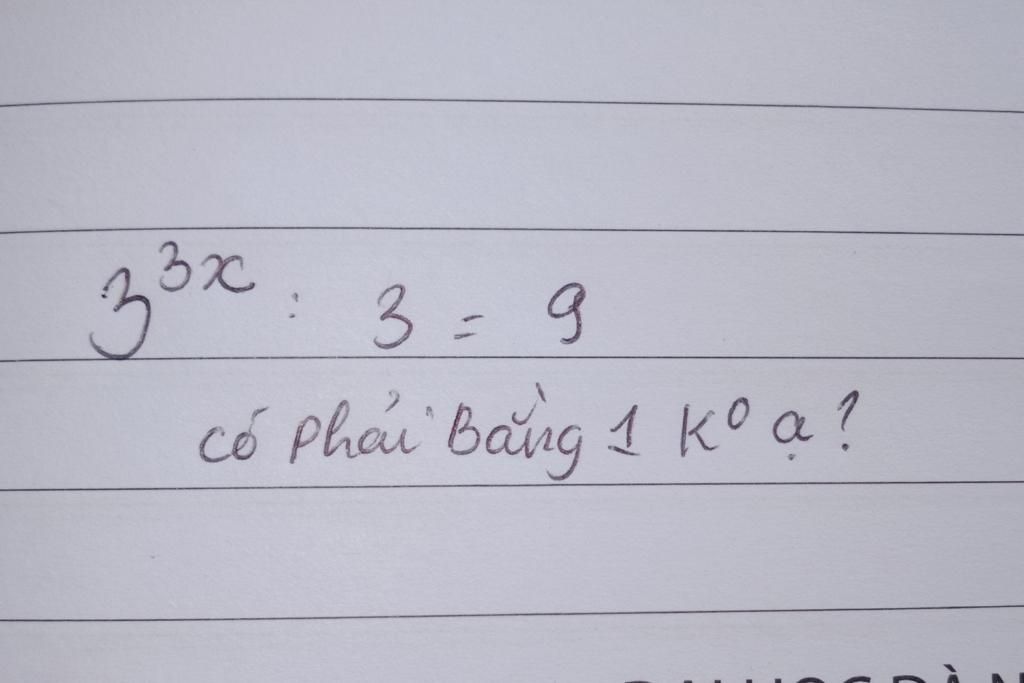 3³ˣ : 3 = 9
có phải Bằng 1 K⁰ ạ?